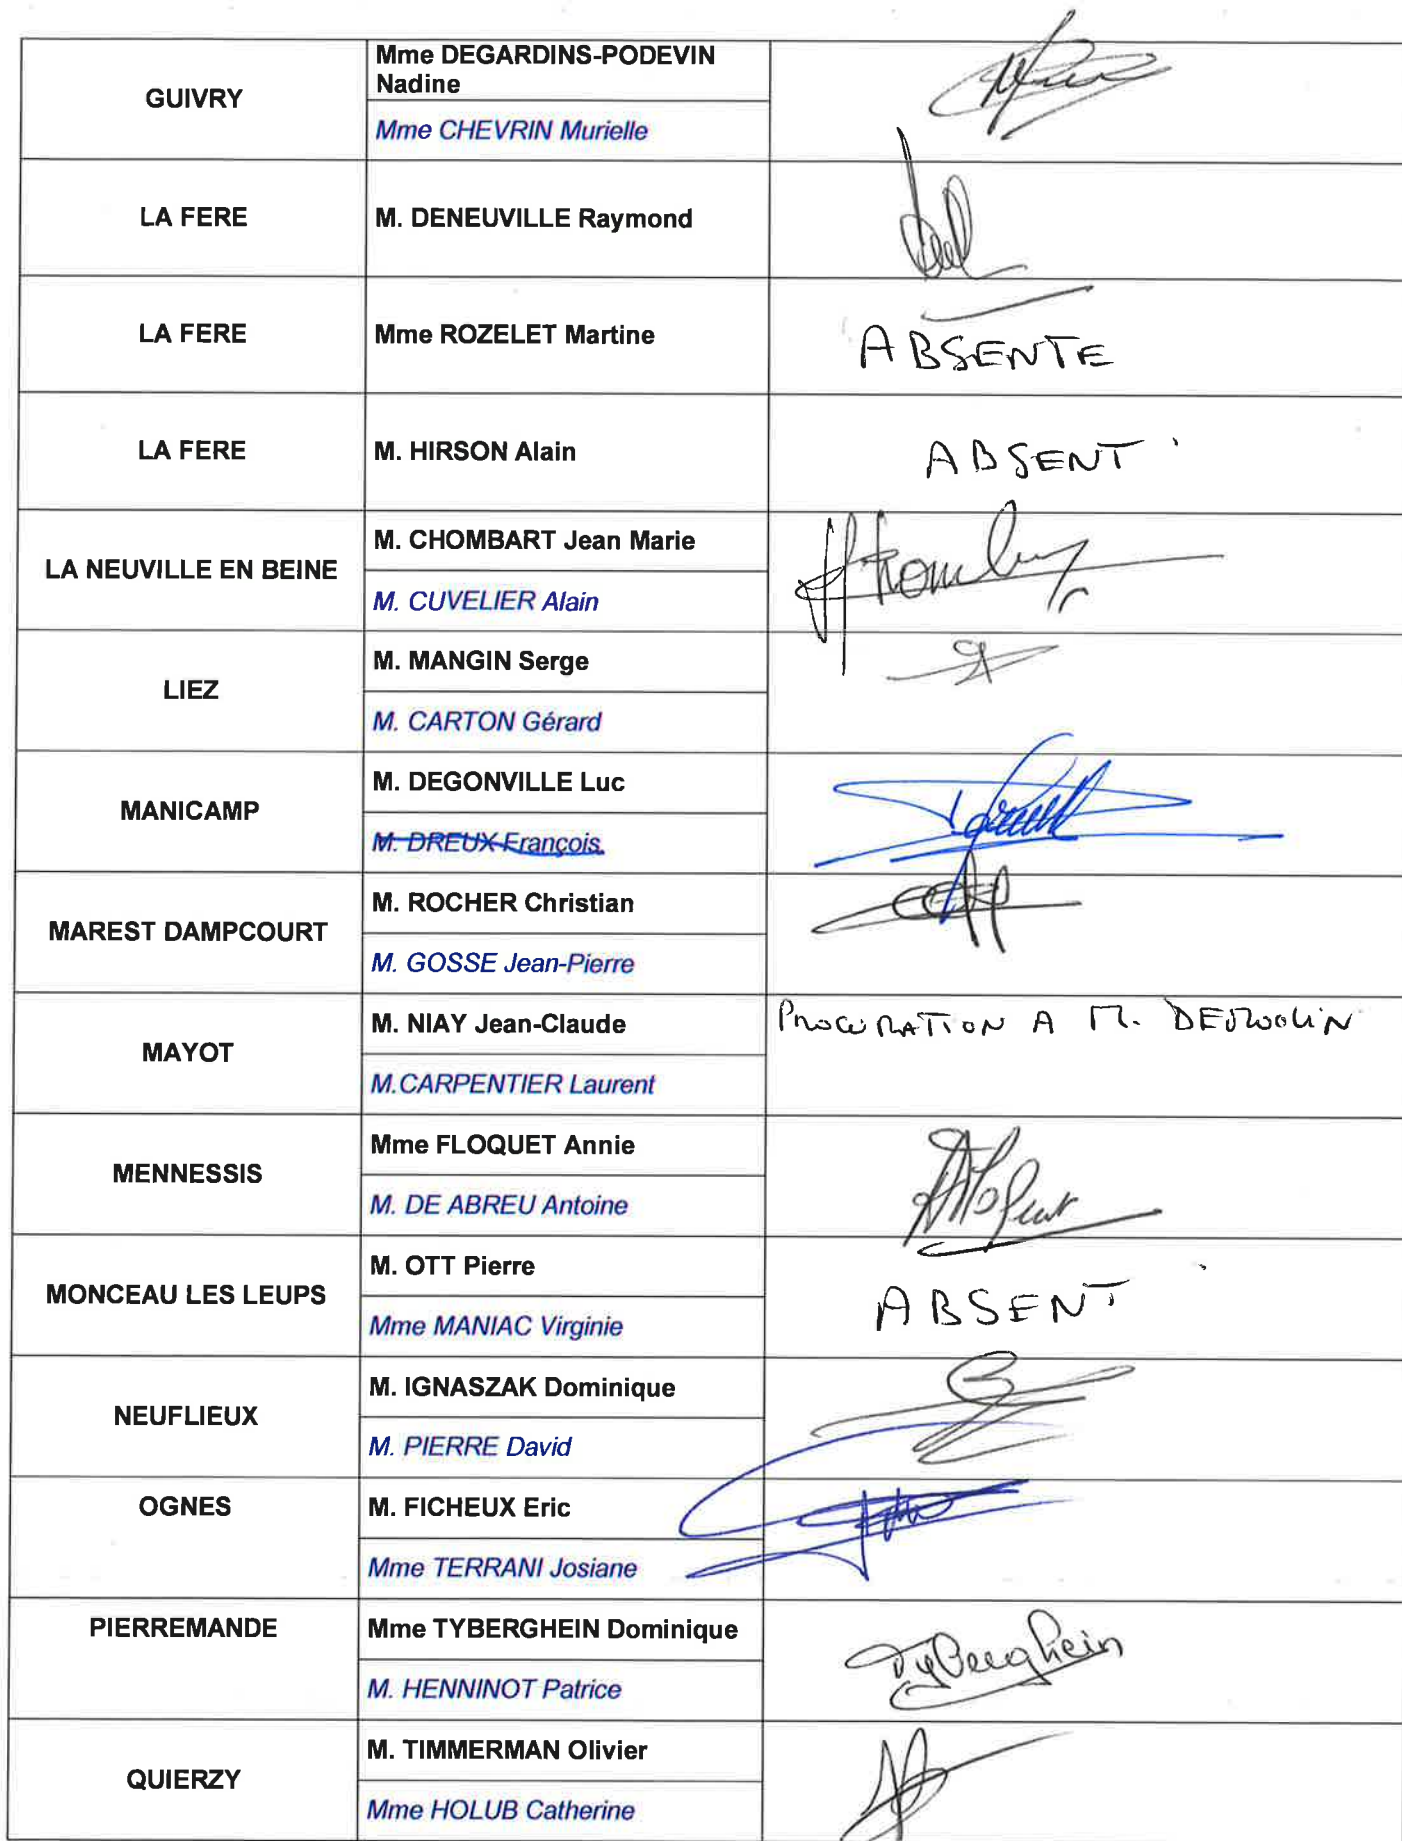 GUIVRY
Mme DEGARDINS-PODEVIN
Nadine
Mme CHEVRIN Murielle
LA FERE
M. DENEUVILLE Raymond
LA FERE
Mme ROZELET Martine
ABSENTE
LA FERE
M. HIRSON Alain
ABSENT
LA NEUVILLE EN BEINE
M. CHOMBART Jean Marie
M. CUVELIER Alain
LIEZ
M. MANGIN Serge
M. CARTON Gérard
MANICAMP
M. DEGONVILLE Luc
M. DREUX François
MAREST DAMPCOURT
M. ROCHER Christian
M. GOSSE Jean-Pierre
MAYOT
M. NIAY Jean-Claude
PROCURATION A M.
M.CARPENTIER Laurent
MENNESSIS
Mme FLOQUET Annie
M. DE ABREU Antoine
MONCEAU LES LEUPS
M. OTT Pierre
ABSENT
Mme MANIAC Virginie
NEUFLIEUX
M. IGNASZAK Dominique
M. PIERRE David
OGNES
M. FICHEUX Eric
Mme TERRANI Josiane
PIERREMANDE
Mme TYBERGHEIN Dominique
Tyberghein
M. HENNINOT Patrice
QUIERZY
M. TIMMERMAN Olivier
Mme HOLUB Catherine